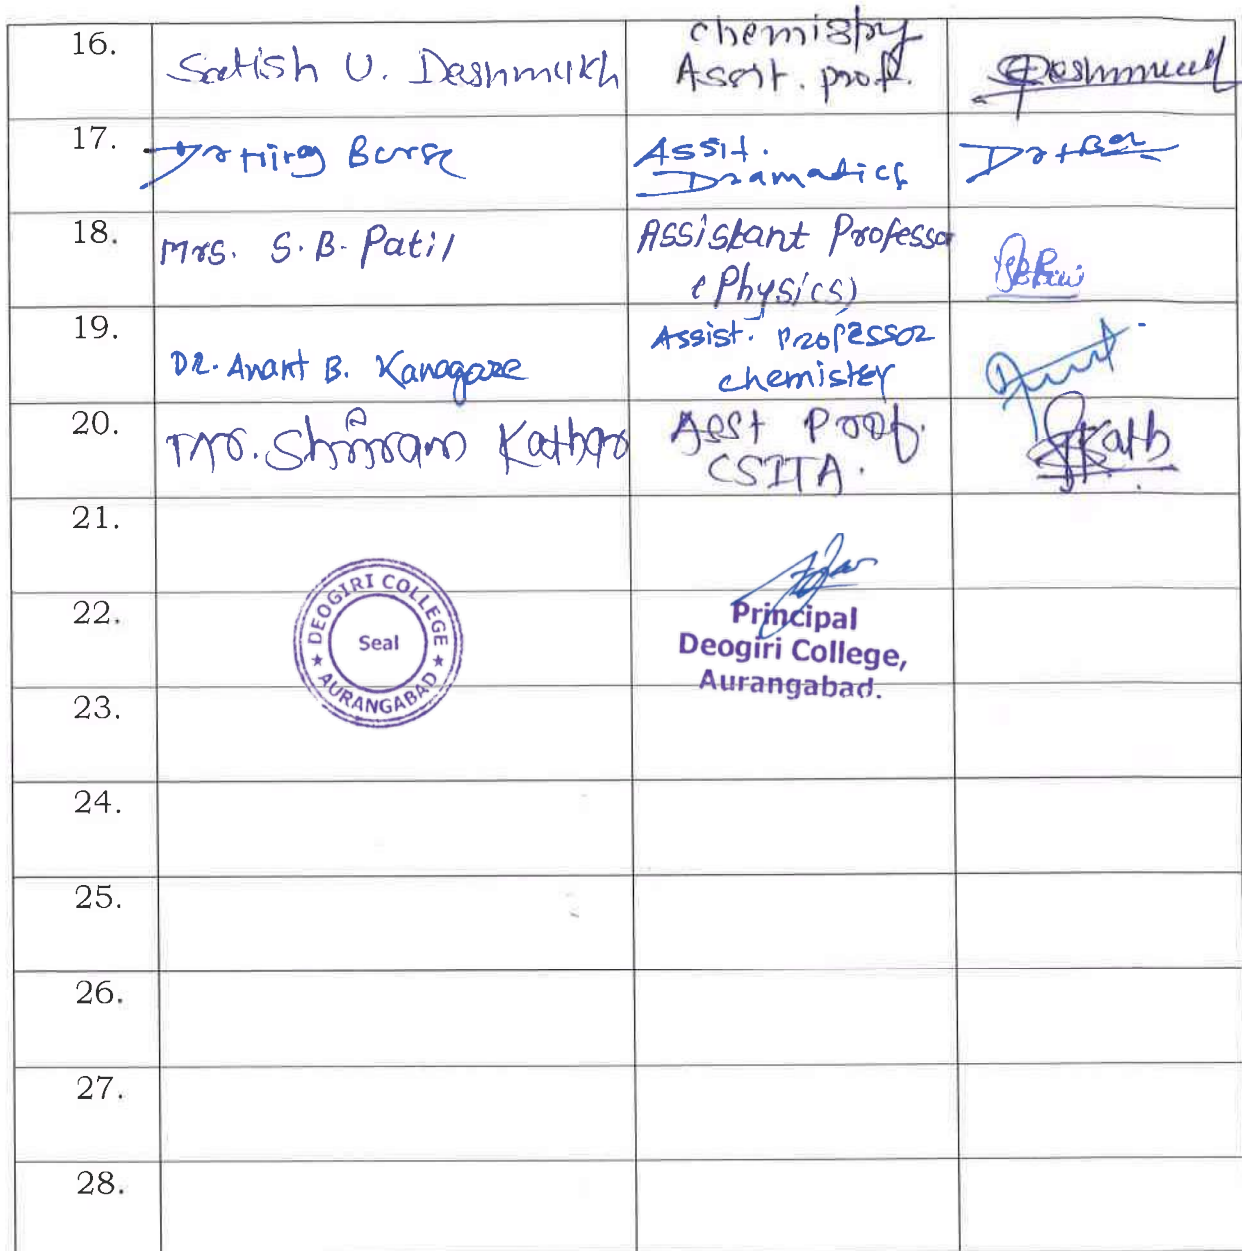 16.
Satish U. Deshmukh
chemistry
Assit. prof.
Deshmukh
17.
Dr
Assit.
Dramatics
18.
Mrs. S. B. Patil
Assistant Professor
(Physics)
19.
DR. Anant B. Kanagare
Assist. professor
chemistry
20.
Mr. Shriram Kathar
Asst Prof.
CSITA.
21.
22.
DEOGIRI COLLEGE
Seal
★ AURANGABAD ★
Principal
Deogiri College,
Aurangabad.
23.
24.
25.
26.
27.
28.